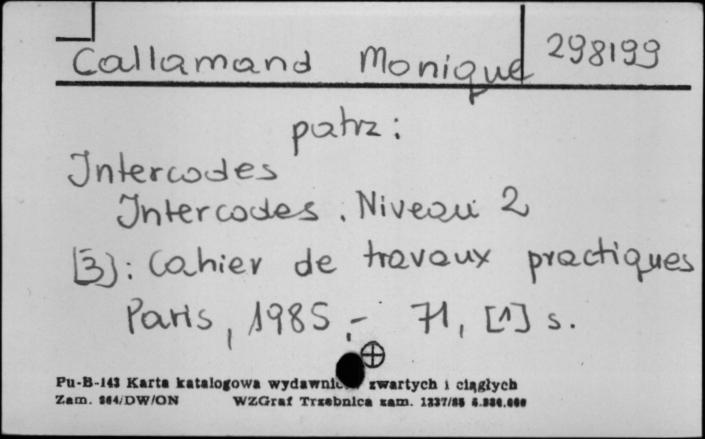 Callamand Monique 298199
patrz:
Intercodes
Intercodes. Niveau 2
[3]: Cahier de travaux practiques
Paris, 1985.- 71, [1] s.
Pu-B-143 Karta katalogowa zwartych i ciągłych
Zam. 864/DW/ON WZGraf Trzebnica zam. 1237/85